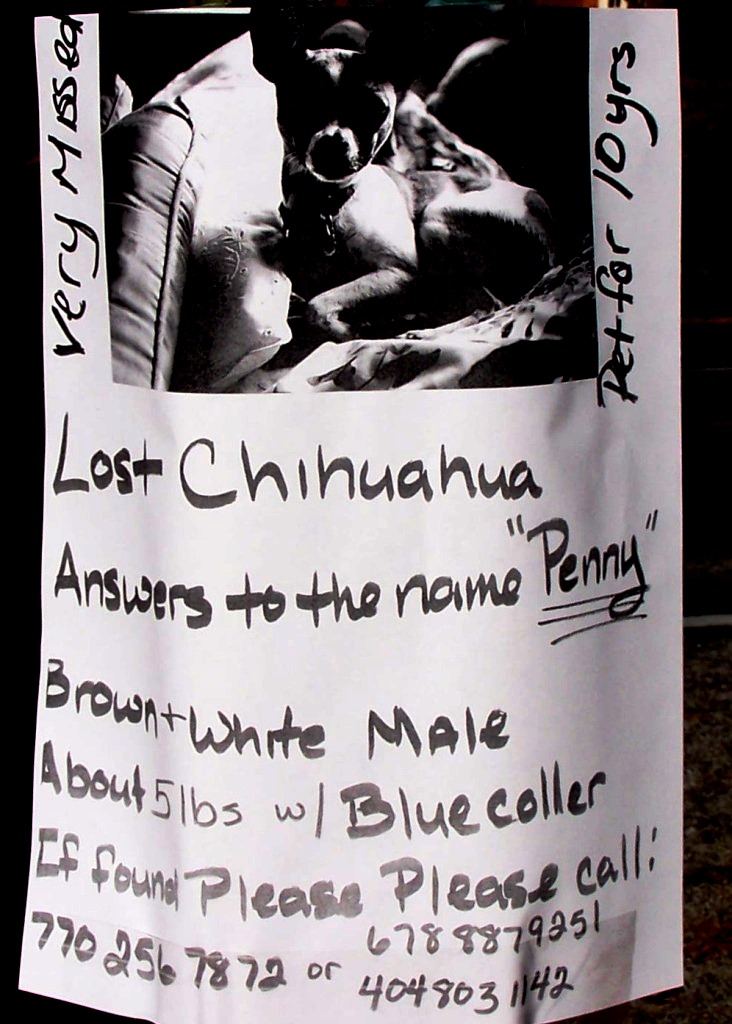 Very Missed
Pet for 10 yrs
Lost Chihuahua
Answers to the name "Penny"
Brown + White Male
About 5 lbs w/ Blue coller
If found Please Please call:
770 256 7872 or 678 887 9251
404 803 1142